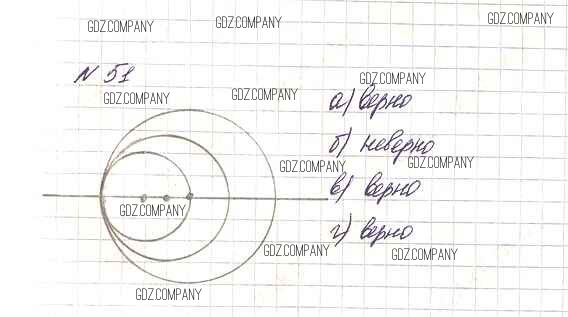 GDZ.COMPANY GDZ.COMPANY GDZ.COMPANY
N 51
GDZ.COMPANY GDZ.COMPANY GDZ.COMPANY
а) верно
б) неверно
GDZ.COMPANY GDZ.COMPANY
в) верно
GDZ.COMPANY
г) верно
GDZ.COMPANY GDZ.COMPANY
GDZ.COMPANY